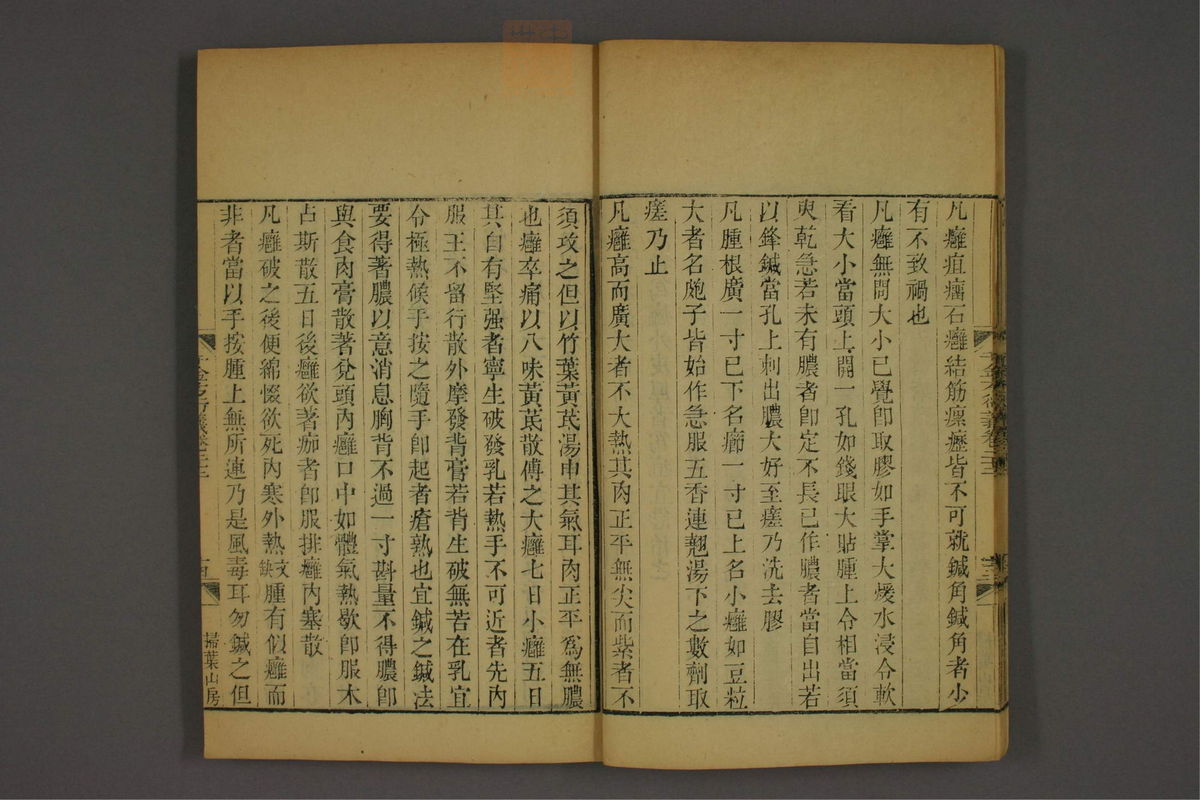 凡癰疽瘤石癰結筋瘰癧皆不可就鍼角鍼角者少
有不致禍也
凡癰無問大小已覺卽取膠如手掌大煖水浸令軟
看大小當頭上開一孔如錢眼大貼腫上令相當須
臾乾急若未有膿者卽定不長已作膿者當自出若
以鋒鍼當孔上刺出膿大好至瘥乃洗去膠
凡腫根廣一寸已下名癤一寸已上名小癰如豆粒
大者名皰子皆始作急服五香連翹湯下之數劑取
瘥乃止
凡癰高而廣大者不大熱其肉正平無尖而紫者不
須攻之但以竹葉黃芪湯申其氣耳肉正平爲無膿
也癰卒痛以八味黃芪散傅之大癰七日小癰五日
其自有堅强者寧生破發乳若熱手不可近者先內
服王不留行散外摩發背膏若背生破無苦在乳宜
令極熱候手按之隨手卽起者瘡熟也宜鍼之鍼法
要得著膿以意消息胸背不過一寸斟量不得膿卽
與食肉膏散著兌頭內癰口中如體氣熱歇卽服木
占斯散五日後癰欲著痂者卽服排癰內塞散
凡癰破之後便綿惙欲死內寒外熱文缺腫有似癰而
非者當以手按腫上無所連乃是風毒耳勿鍼之但
千金方衍義卷二十二
掃葉山房